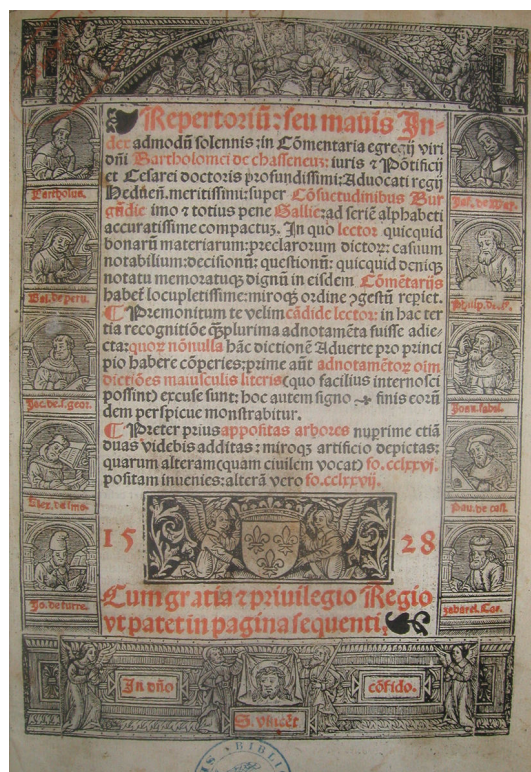 Repertoriū: seu mauis In-
dex admodū solennis: in Cōmentaria egregij viri
dn̄i Bartholomei de chasseneuz: iuris ⁊ Pōtificij
et Cesarei doctoris profundissimi: Aduocati regij
Heduen̄. meritissimi: super Cōsuetudinibus Bur
gūdie imo ⁊ totius pene Gallie: ad seriē alphabeti
accuratissime compactuz. In quo lector quicquid
bonarū materiarum: preclarorum dictoꝝ: casuum
notabilium: decisionū: questionū: quicquid deniqꝫ
notatu memoratuqꝫ dignū in eisdem Cōmētarijs
habet locupletissime: miroqꝫ ordine ꝯgestū repiet.
¶ Premonitum te velim cādide lector: in hac ter
tia recognitiōe q̄ꝫplurima adnotamēta fuisse adie-
cta: quoꝝ nōnulla hāc dictionē Aduerte pro princi
pio habere cōperies: prime aūt adnotamētoꝝ oīm
dictiōes maiusculis literis (quo facilius internosci
possint) excuse sunt: hoc autem signo finis eorū
dem perspicue monstrabitur.
¶ Preter prius appositas arbores nuprime etiā
duas videbis additas: miroqꝫ artificio depictas:
quarum alteram (quam ciuilem vocat) fo. cclxxvj.
positam inuenies: alterā vero fo. cclxxvij.
15 28
Cum gratia ⁊ priuilegio Regio
vt patet in pagina sequenti.
Bartholus.
Bal. de peru.
Jac. de s. geor.
Alex. de imo.
Jo. de turre.
Jas. de may.
Philip. de
Pau. de cast.
zabarel. Car.
In dn̄o cōfido.
S. vincēt
BIBLI